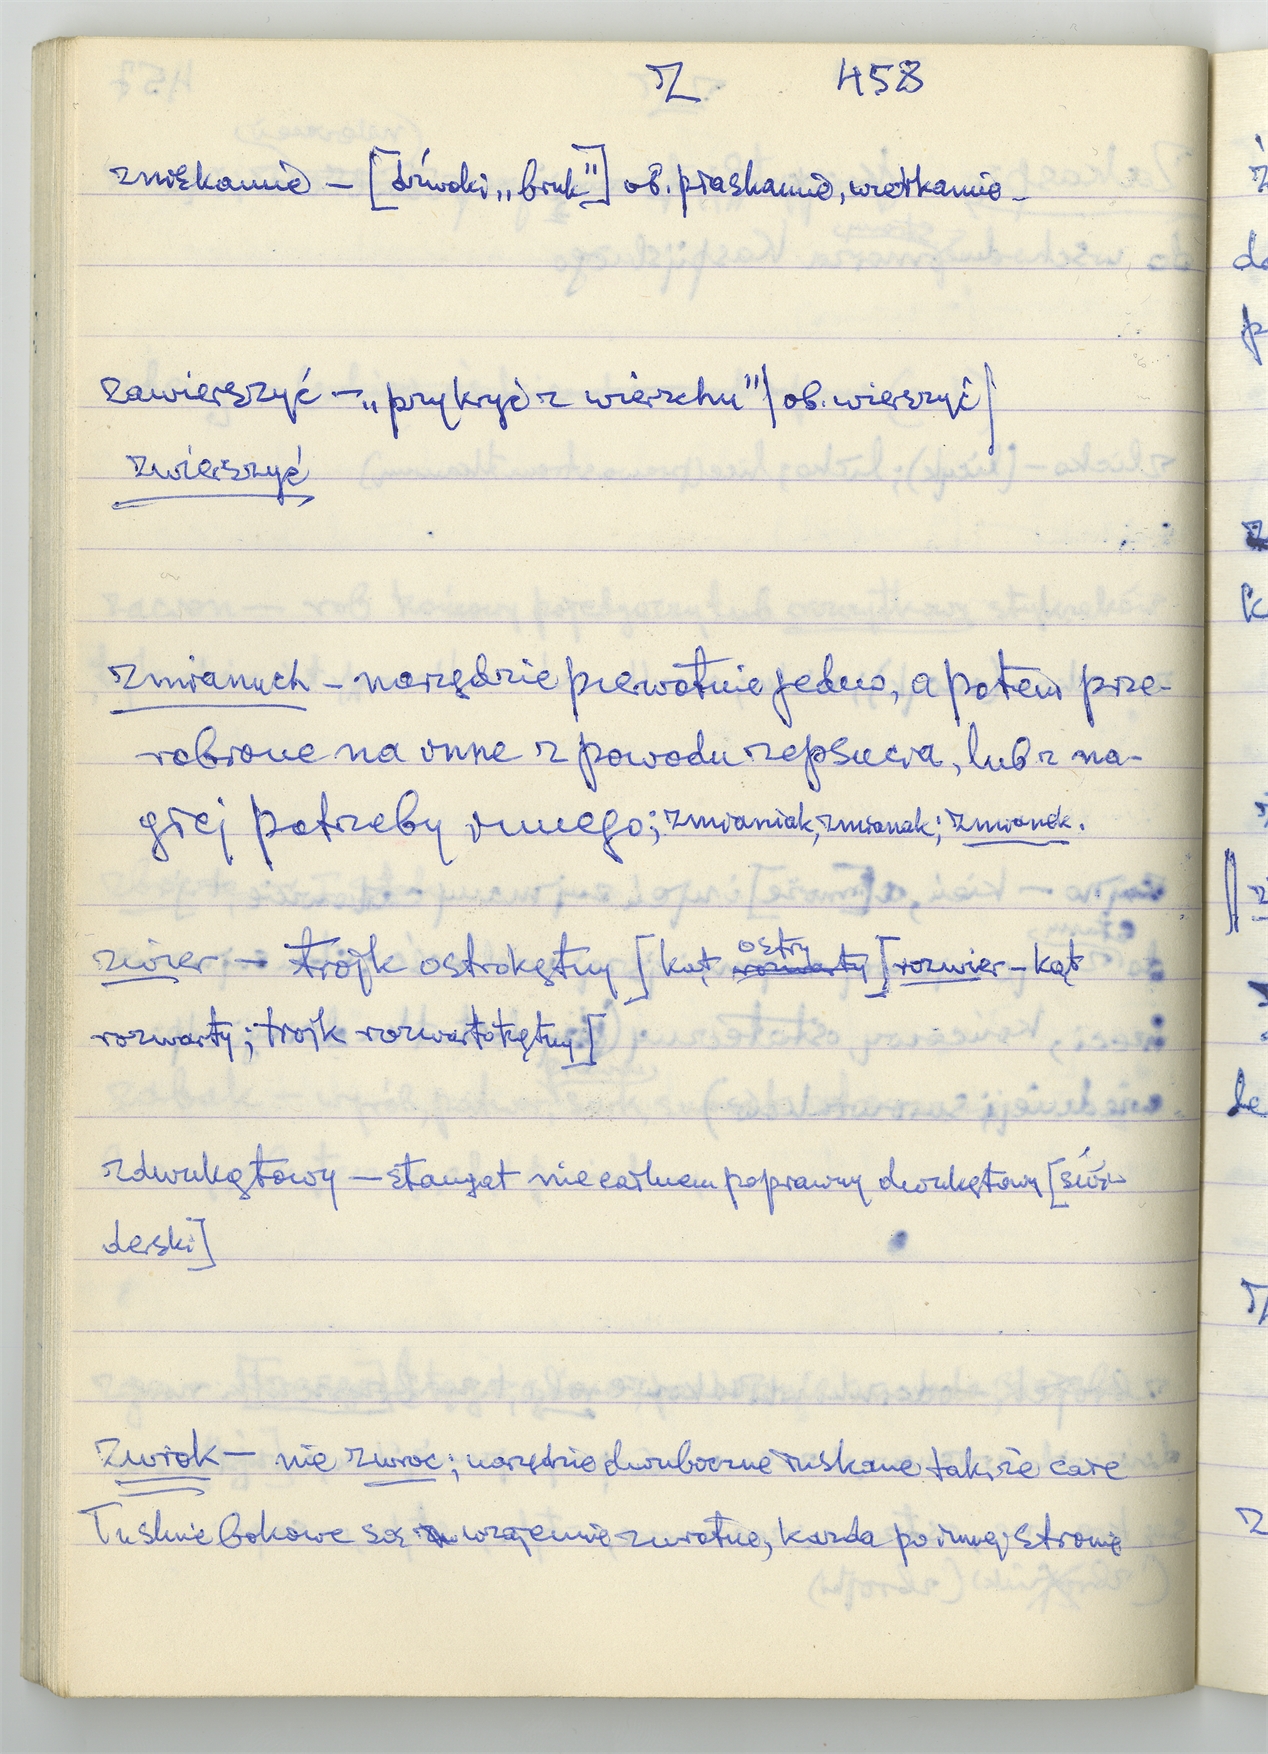 Z 458
zmiękanie – [dźwoki „bruk"] ob. płaskanie, wiotkanie –
zawierszyć – „przykryć z wierzchu" | ob. wierszyć |
zwierszyć
zmianuch – narzędzie pierwotnie jedno, a potem prze-
robione na inne z powodu zepsucia, lub z na-
głej potrzeby innego; zmianiak, zmianak; zmianek.
zwier – trójk ostrokątny [kąt ostry rozwarty] rozwier – kąt
rozwarty; trójk rozwartokątny]
zdwukątowy – stangat nie całkiem poprawny dwukątowy [świ-
derski]
zwrok – nie zwroc; narzędzie dwuboczne łuskane tak, że całe
łusknie bokowe są wzajemnie zwrotne, każda po innej stronie